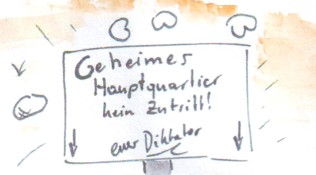 Geheimes
Hauptquartier
kein Zutritt!
euer Diktator